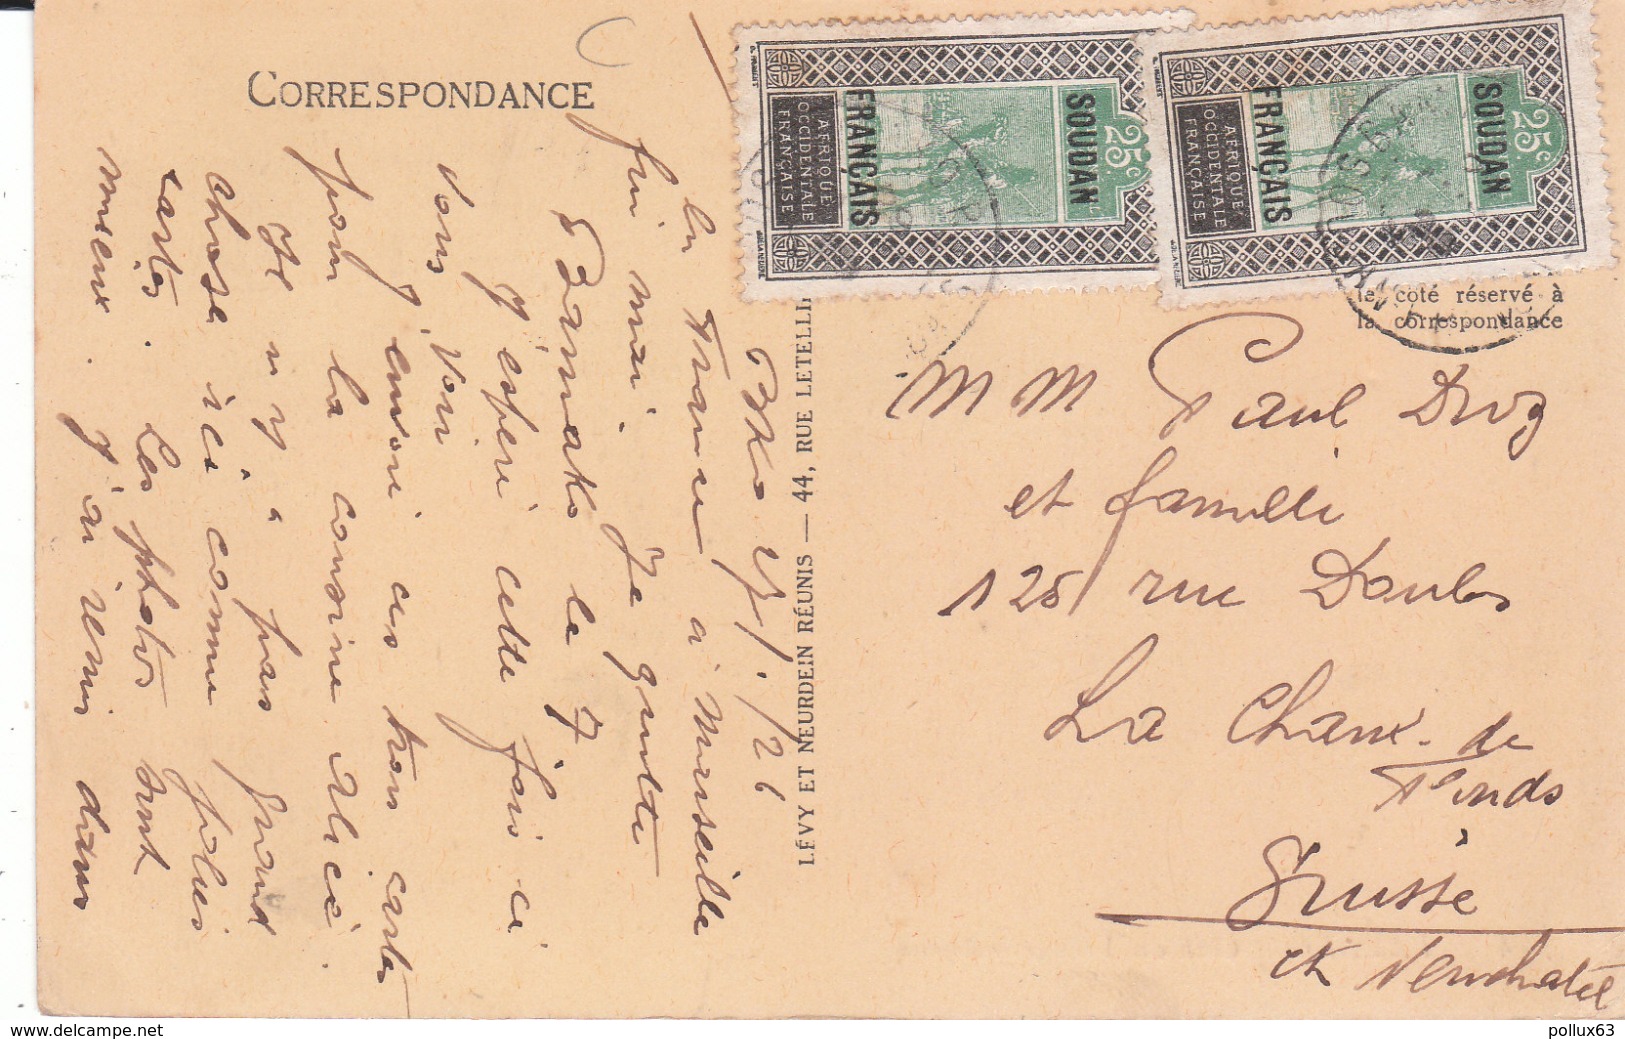 CORRESPONDANCE
BKo 4/1.26
en France à Marseille
fin mai. Je quitte
Bamako le 7
J'espère cette fois-ci
vous voir
J'envoie ces trois cartes
pour la cousine Alice.
Il n'y a pas grand
chose ici comme jolies
cartes. les photos sont
mieux. J'ai remis dans
LÉVY ET NEURDEIN RÉUNIS — 44, RUE LETELLI
25c
SOUDAN
FRANÇAIS
AFRIQUE
OCCIDENTALE
FRANÇAISE
25c
SOUDAN
FRANÇAIS
AFRIQUE
OCCIDENTALE
FRANÇAISE
le côté réservé à
la correspondance
M M Paul Droz
et famille
125 rue Doubs
La Chaux-de
Fonds
Suisse
Ct Neuchatel
www.delcampe.net
pollux63